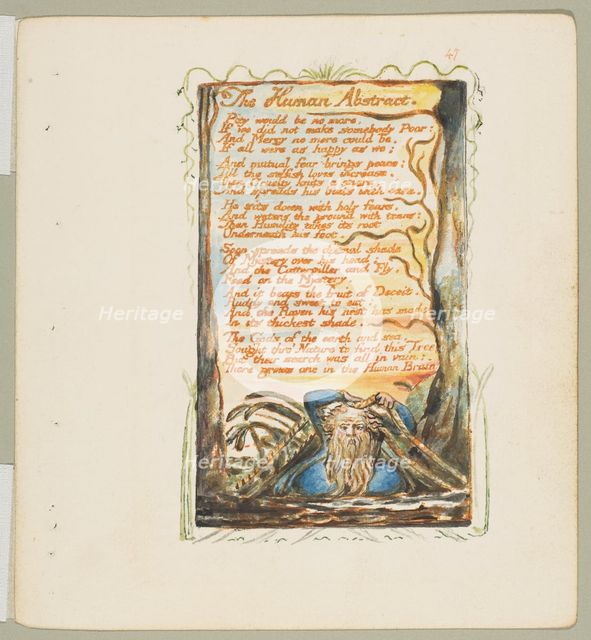 47
The Human Abstract.
Pity would be no more,
If we did not make somebody Poor:
And Mercy no more could be,
If all were as happy as we;
And mutual fear brings peace;
Till the selfish loves increase.
Then Cruelty knits a snare,
And spreads his baits with care.
He sits down with holy fears,
And waters the ground with tears:
Then Humility takes its root
Underneath his foot.
Soon spreads the dismal shade
Of Mystery over his head;
And the Catterpiller and Fly,
Feed on the Mystery.
And it bears the fruit of Deceit,
Ruddy and sweet to eat;
And the Raven his nest has made
In its thickest shade.
The Gods of the earth and sea,
Sought thro' Nature to find this Tree
But their search was all in vain:
There grows one in the Human Brain
Heritage Images
Heritage Images
Heritage Images
Heritage
Heritage
Heritage